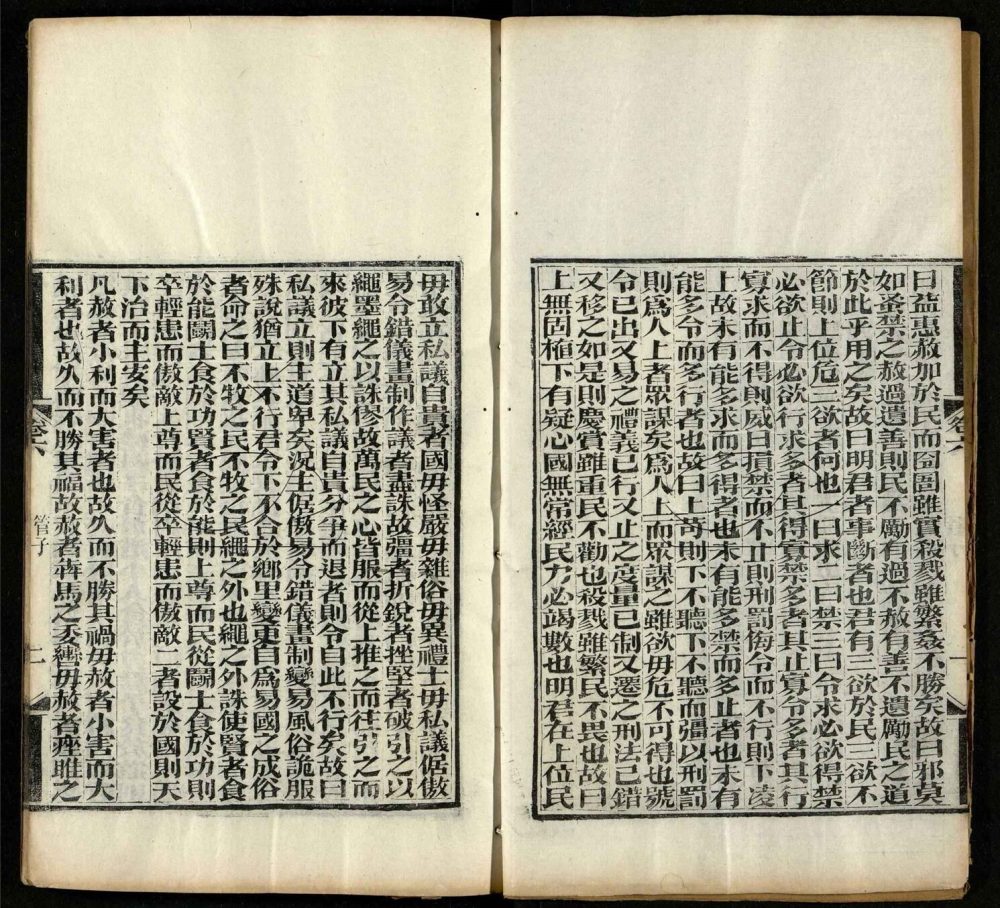 日益惠赦加於民而囹圄雖實殺戮雖繁姦不勝矣故曰邪莫
如蚤禁之赦過遺善則民不勵有過不赦有善不遺勵民之道
於此乎用之矣故曰明君者事斷者也君有三欲於民三欲不
節則上位危三欲者何也一曰求二曰禁三曰令求必欲得禁
必欲止令必欲行求多者其得寡禁多者其止寡令多者其行
寡求而不得則威日損禁而不止則刑罰侮令而不行則下凌
上故未有能多求而多得者也未有能多禁而多止者也未有
能多令而多行者也故曰上苛則下不聽下不聽而彊以刑罰
則爲人上者眾謀矣爲人上而眾謀之雖欲毋危不可得也號
令已出又易之禮義已行又止之度量已制又遷之刑法已錯
又移之如是則慶賞雖重民不勸也殺戮雖繁民不畏也故曰
上無固植下有疑心國無常經民力必竭數也明君在上位民
毋敢立私議自貴者國毋怪嚴毋雜俗毋異禮士毋私議倨傲
易令錯儀畫制作議者盡誅故彊者折銳者挫堅者破引之以
繩墨繩之以誅僇故萬民之心皆服而從上推之而往引之而
來彼下有立其私議自貴分爭而退者則令自此不行矣故曰
私議立則主道卑矣況主倨傲易令錯儀畫制變易風俗詭服
殊說猶立上不行君令下不合於鄉里變更自爲易國之成俗
者命之曰不牧之民不牧之民繩之外也繩之外誅使賢者食
於能鬭士食於功賢者食於能則上尊而民從鬭士食於功則
卒輕患而傲敵上尊而民從卒輕患而傲敵二者設於國則天
下治而主安矣
凡赦者小利而大害者也故久而不勝其禍毋赦者小害而大
利者也故久而不勝其福故赦者犇馬之委轡毋赦者痤睢之
卷六
管子
二